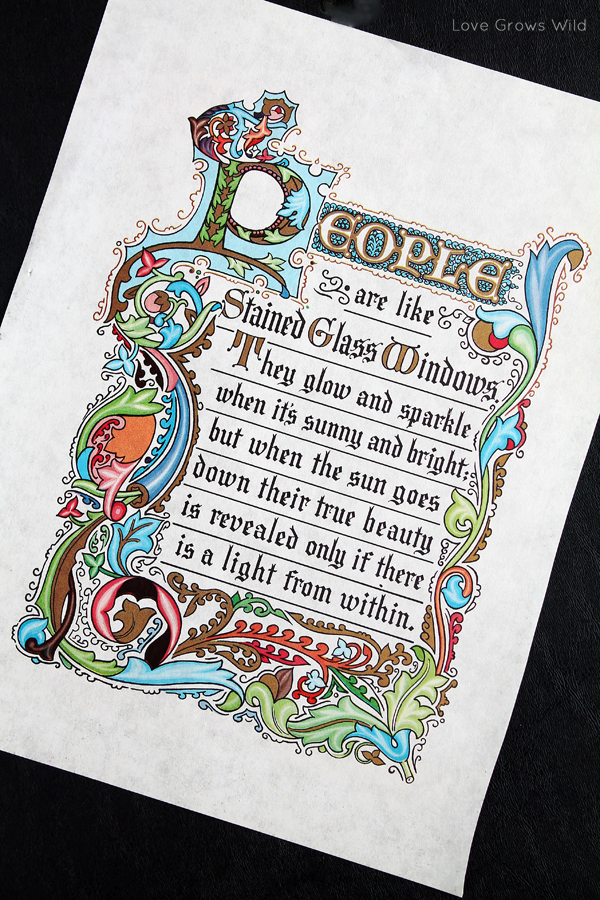 Love Grows Wild
PEOPLE
are like
Stained Glass Windows.
They glow and sparkle
when it's sunny and bright;
but when the sun goes
down their true beauty
is revealed only if there
is a light from within.